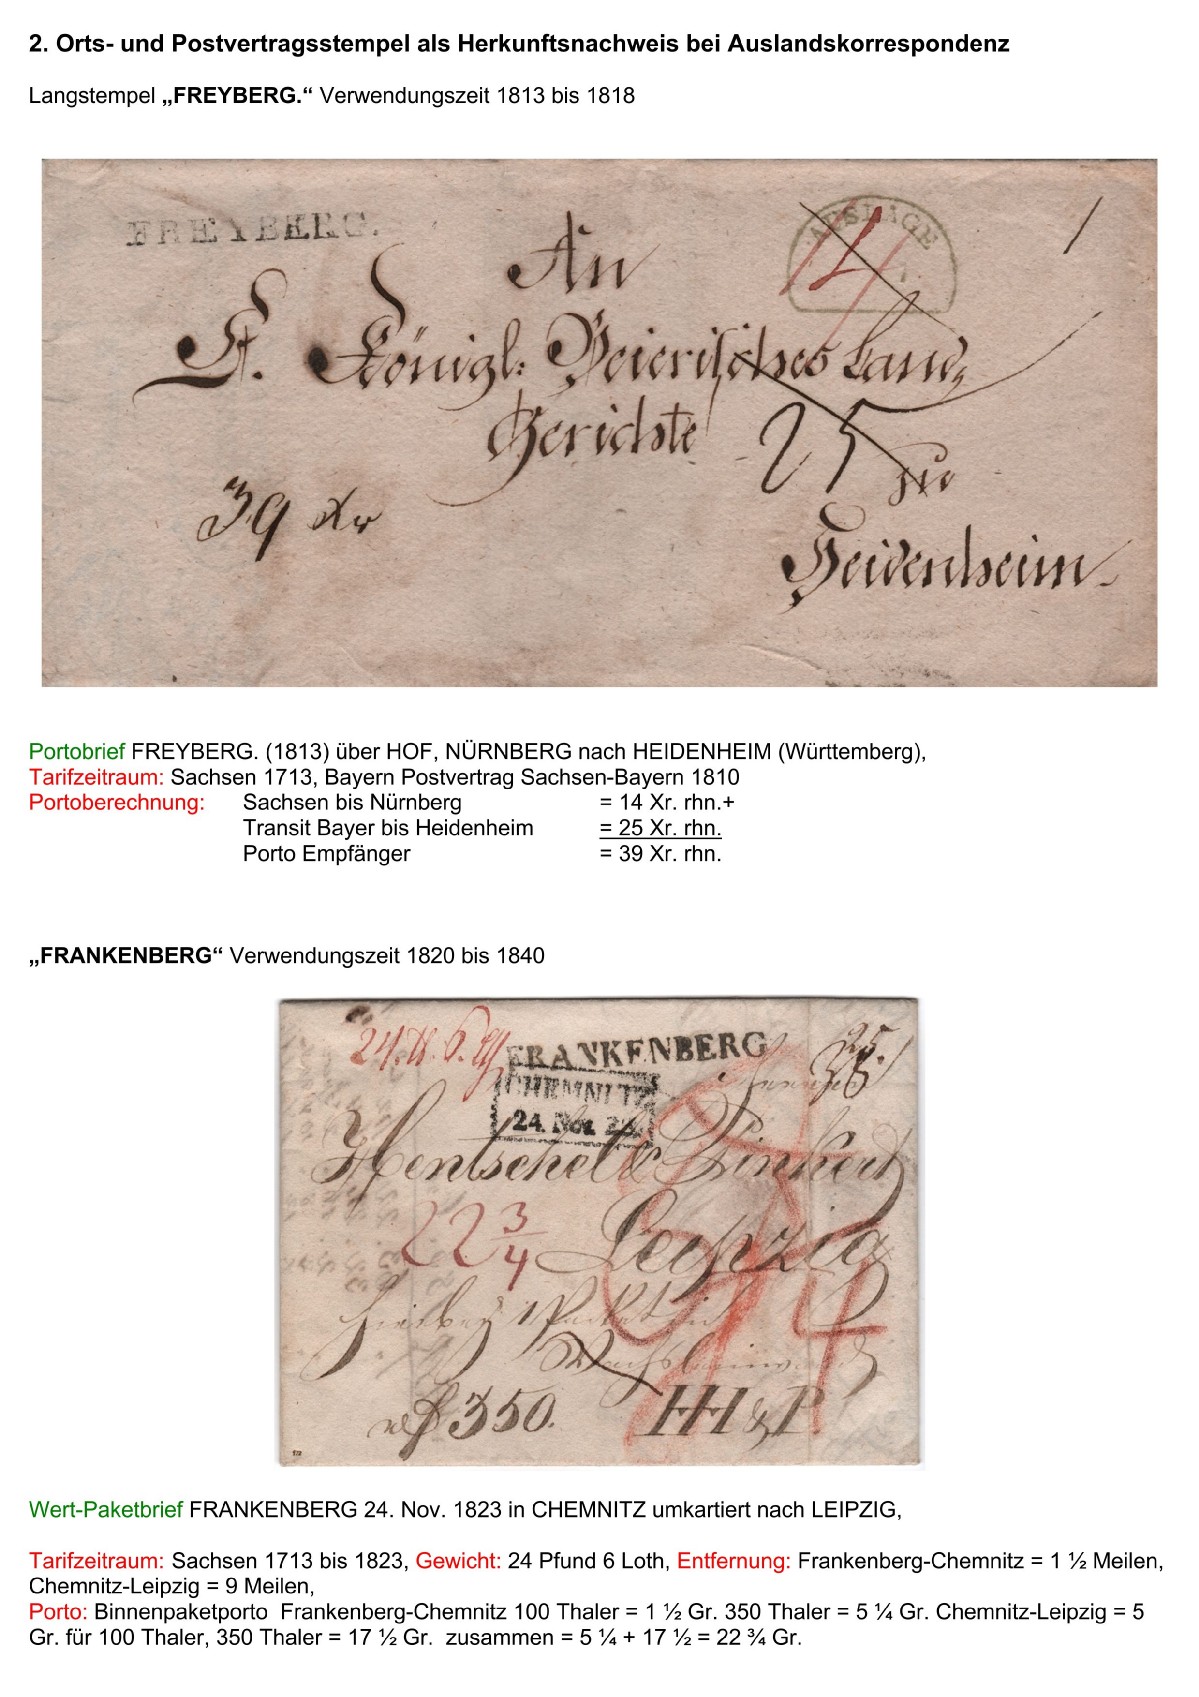 2. Orts- und Postvertragsstempel als Herkunftsnachweis bei Auslandskorrespondenz
Langstempel „FREYBERG.“ Verwendungszeit 1813 bis 1818
FREYBERG.
AUSLAGE
14
An
K. Königl: Beierisches Land
Gerichte
25
zu
39 Xr
Heidenheim
Portobrief FREYBERG. (1813) über HOF, NÜRNBERG nach HEIDENHEIM (Württemberg),
Tarifzeitraum: Sachsen 1713, Bayern Postvertrag Sachsen-Bayern 1810
Portoberechnung: Sachsen bis Nürnberg = 14 Xr. rhn.+
Transit Bayer bis Heidenheim = 25 Xr. rhn.
Porto Empfänger = 39 Xr. rhn.
„FRANKENBERG“ Verwendungszeit 1820 bis 1840
FRANKENBERG
CHEMNITZ
24. Nov.
Hentschel & Pinkert
22 3/4 Leipzig
350. HH & P.
Wert-Paketbrief FRANKENBERG 24. Nov. 1823 in CHEMNITZ umkartiert nach LEIPZIG,
Tarifzeitraum: Sachsen 1713 bis 1823, Gewicht: 24 Pfund 6 Loth, Entfernung: Frankenberg-Chemnitz = 1 ½ Meilen,
Chemnitz-Leipzig = 9 Meilen,
Porto: Binnenpaketporto Frankenberg-Chemnitz 100 Thaler = 1 ½ Gr. 350 Thaler = 5 ¼ Gr. Chemnitz-Leipzig = 5
Gr. für 100 Thaler, 350 Thaler = 17 ½ Gr. zusammen = 5 ¼ + 17 ½ = 22 ¾ Gr.